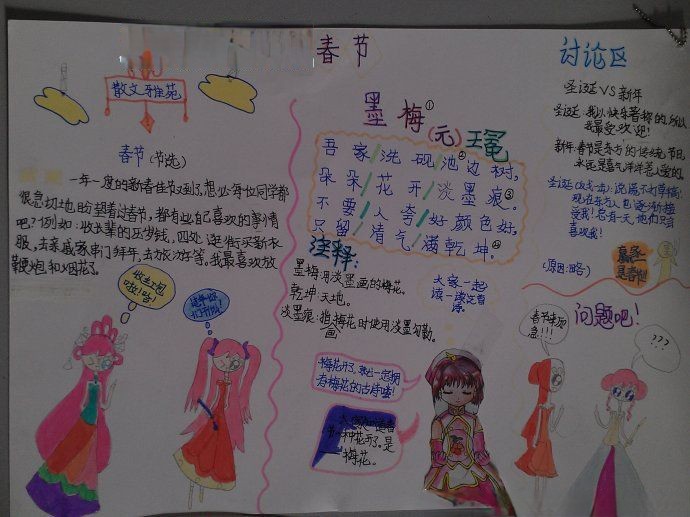 春节
散文雅苑
春节(节选)
一年一度的新春佳节又到了,想必每位同学都
很急切地盼望着过春节,都有些自己喜欢的事情
吧?例如:收长辈的压岁钱,四处逛街买新衣
服,去亲戚家串门拜年,去旅游等。我最喜欢放
鞭炮和烟花了。
收红包
啦!哈!
墨梅①
(元)王冕
吾家洗砚池②边树,
朵朵花开淡墨痕。③
不要人夸好颜色好,
只留清气满乾坤。④
注释:
墨梅:用淡墨画的梅花。
乾坤:天地。
淡墨痕:指画梅花时使用淡墨勾勒。
大家一起
读一读吧
梅花开了,我一定拥
有梅花的古诗喽!
梅花。
讨论区
圣诞VS新年
圣诞:我以快乐著称的,所以
我最受欢迎!
新年:春节是东方的传统节日,
永远是喜气洋洋惹人爱的。
喜欢我!
(原因:略)
赢家
是春节!
问题吧!
春节来历
是!!!
???